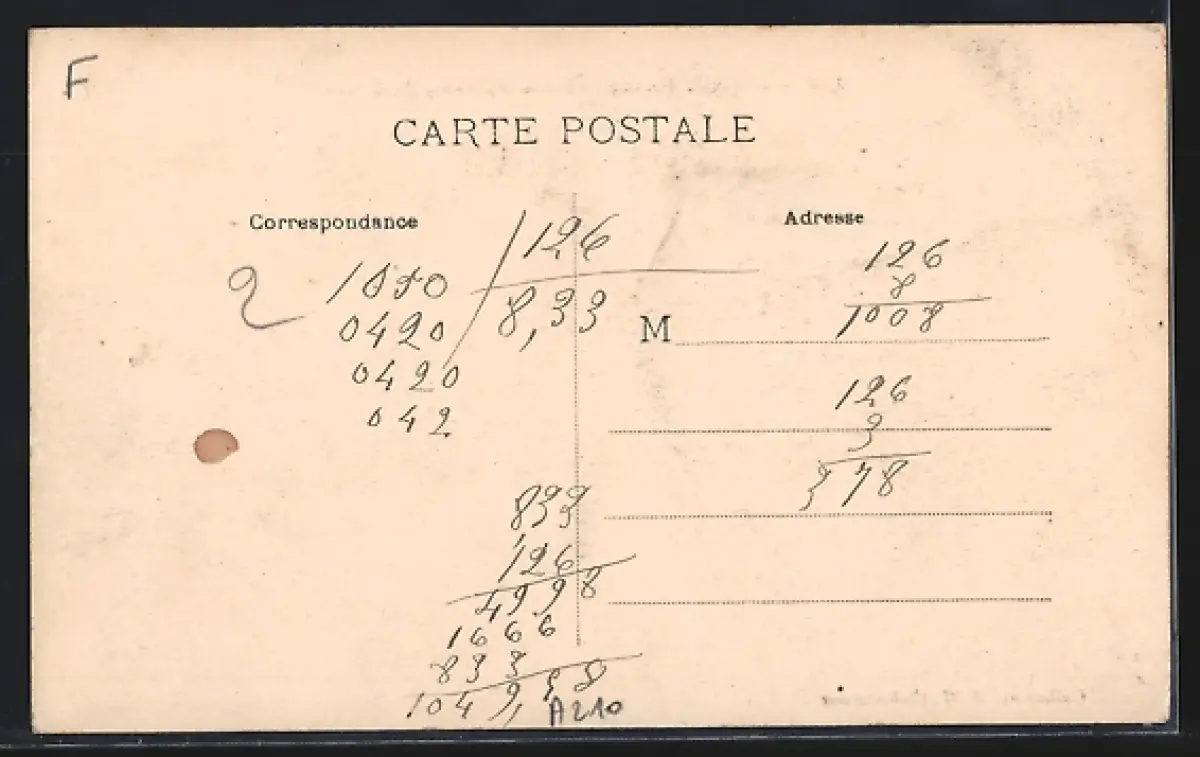 F
CARTE POSTALE
Correspondance
Adresse
2
1050
126
0420
8,33
0420
042
126
8
1008
M
126
3
378
833
126
4998
1666
833
1049,58
A210